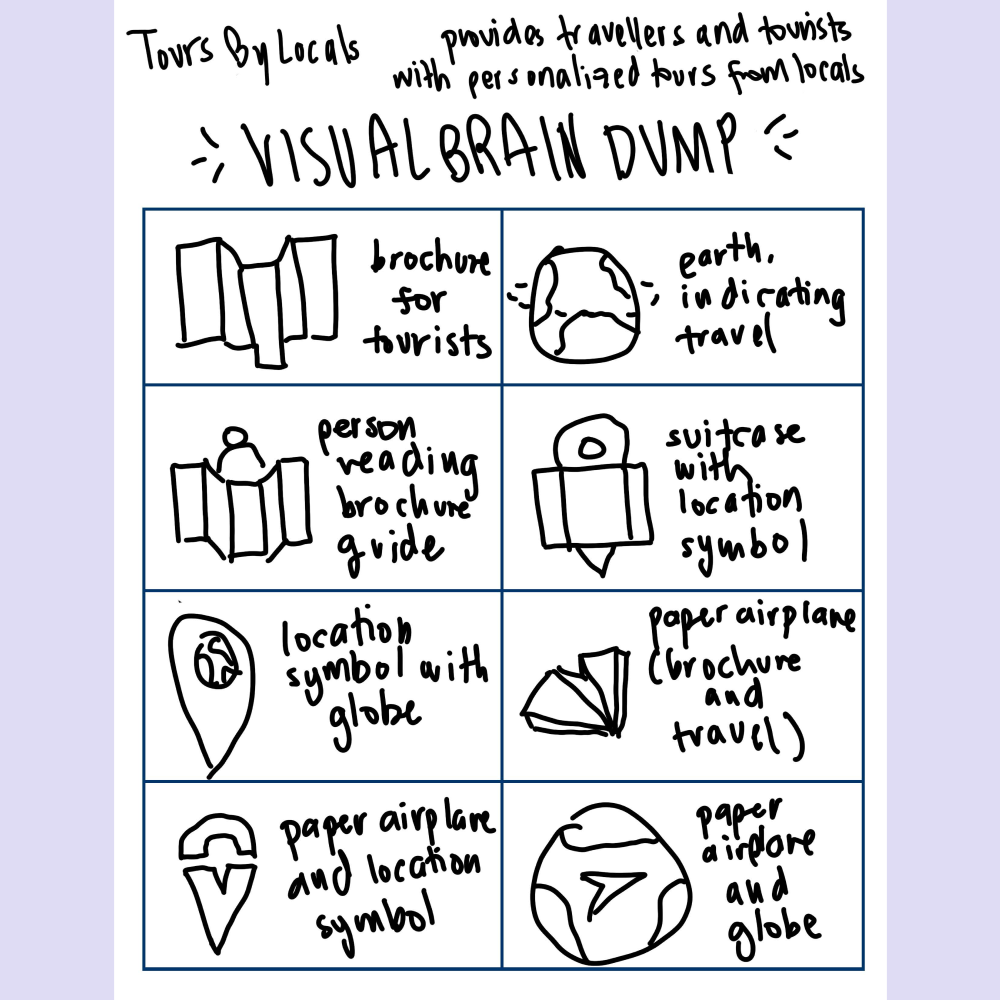 Tours By Locals
provides travellers and tourists
with personalized tours from locals
VISUAL BRAIN DUMP
brochure
for
tourists
earth,
indicating
travel
person
reading
brochure
guide
suitcase
with
location
symbol
location
symbol with
globe
paper airplane
(brochure
and
travel)
paper airplane
and location
symbol
paper
airplane
and
globe